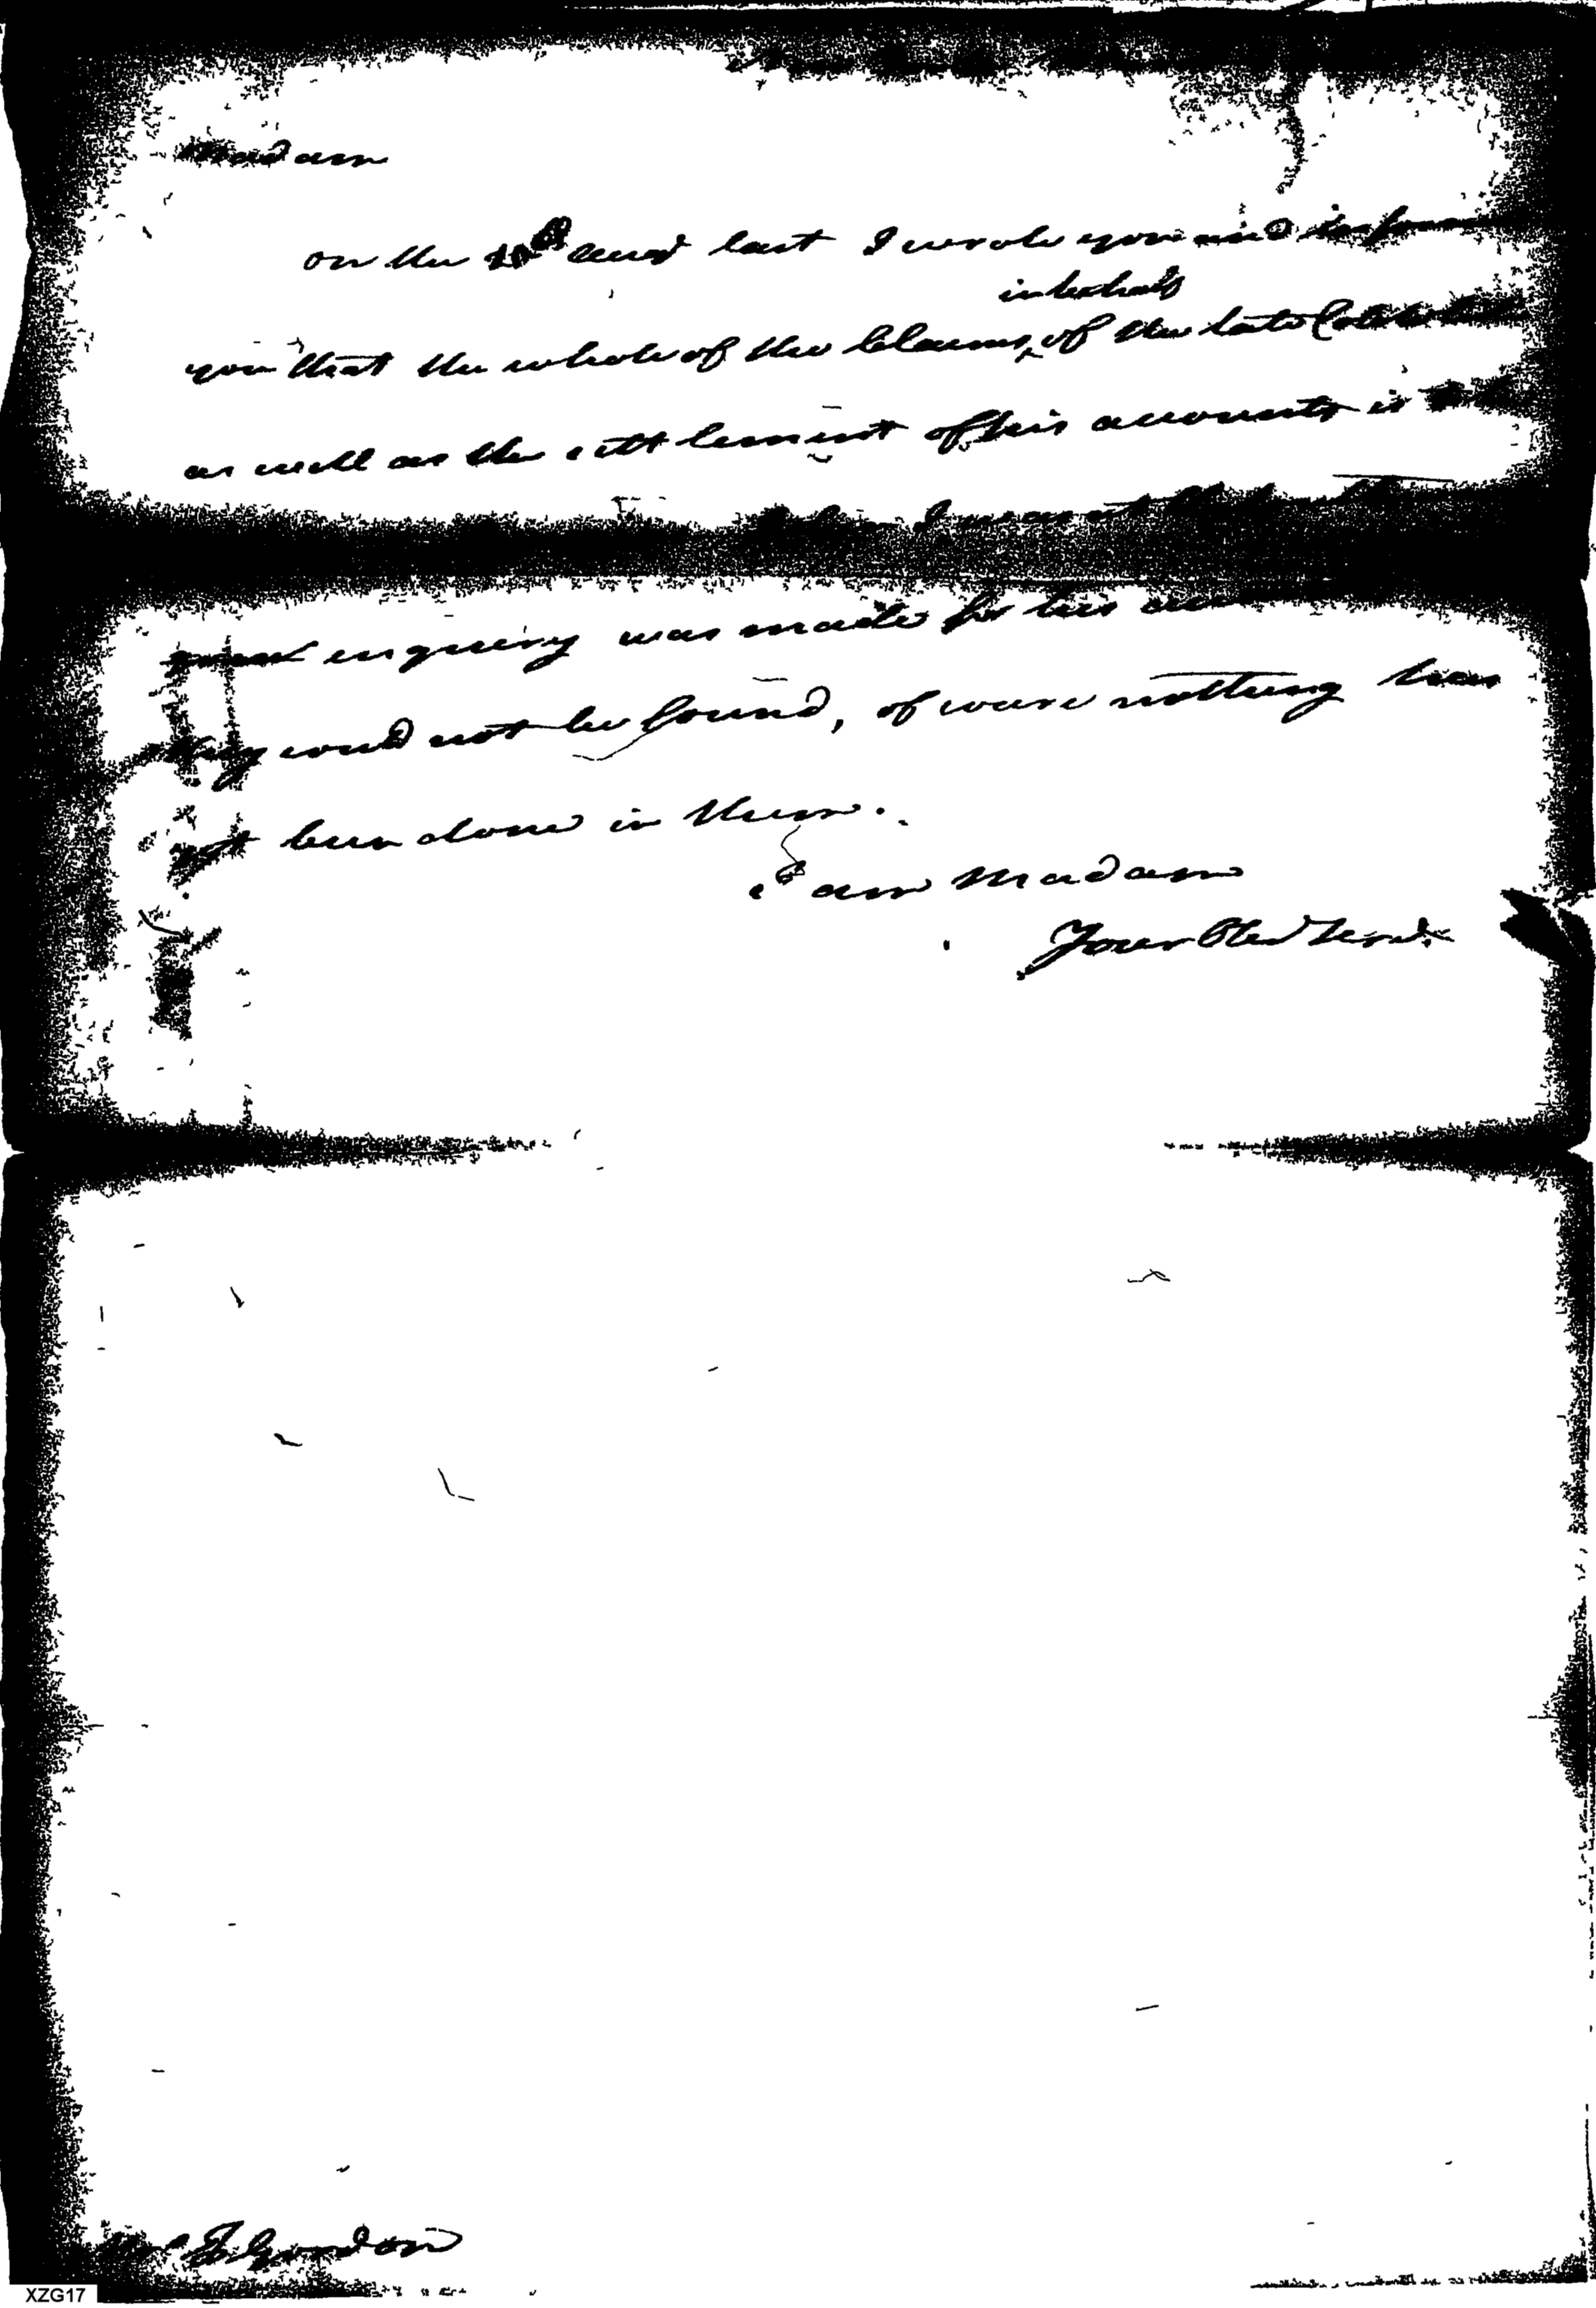 Madam
on the 10th augt last I wrote you and inform
in behalf
you that the whole of the Claims, of the late
as well as the settlement of his accounts is
I was at
enquiry was made for his
they coud not be found, of coure nothing has
yet been done in them.
I am Madam
Your Obed Servt
Mrs Gordon
XZG17